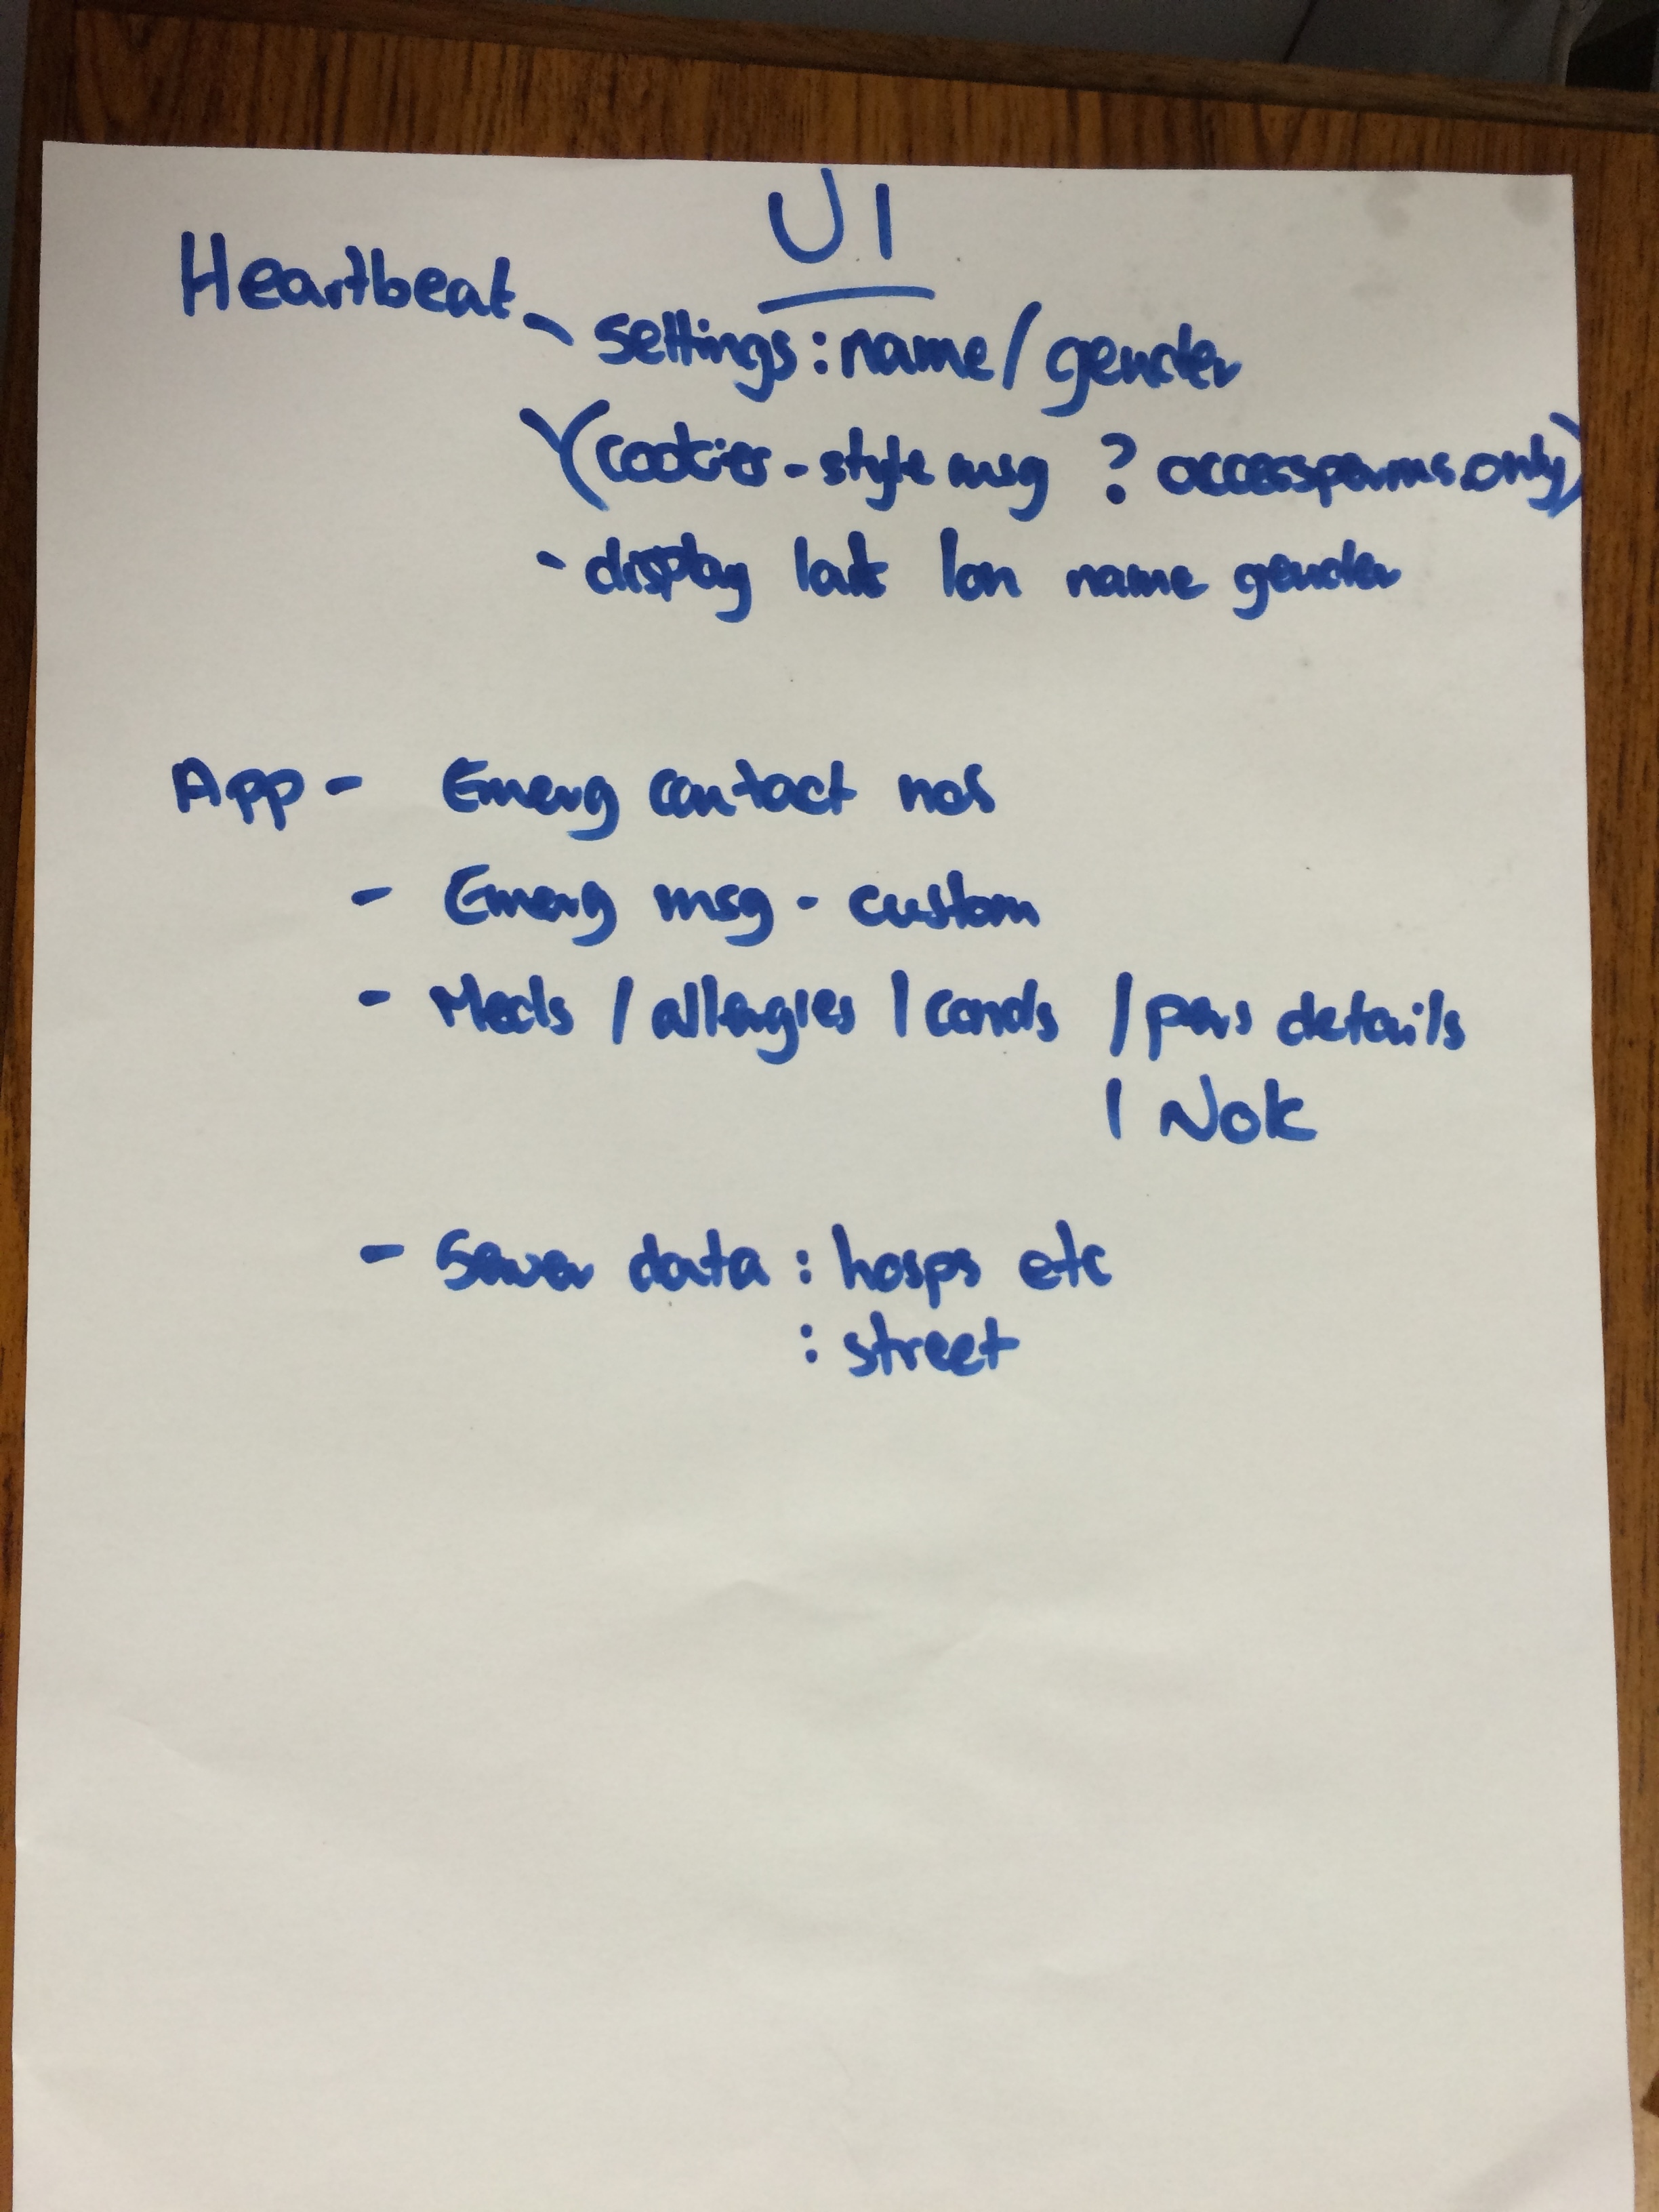 UI
Heartbeat - settings: name / gender
(cookies-style msg ? access perms only)
- display lat lon name gender
App - Emerg contact nos
- Emerg msg - custom
- Meds / allergies / conds / pers details
/ NoK
- Server data : hosps etc
: street